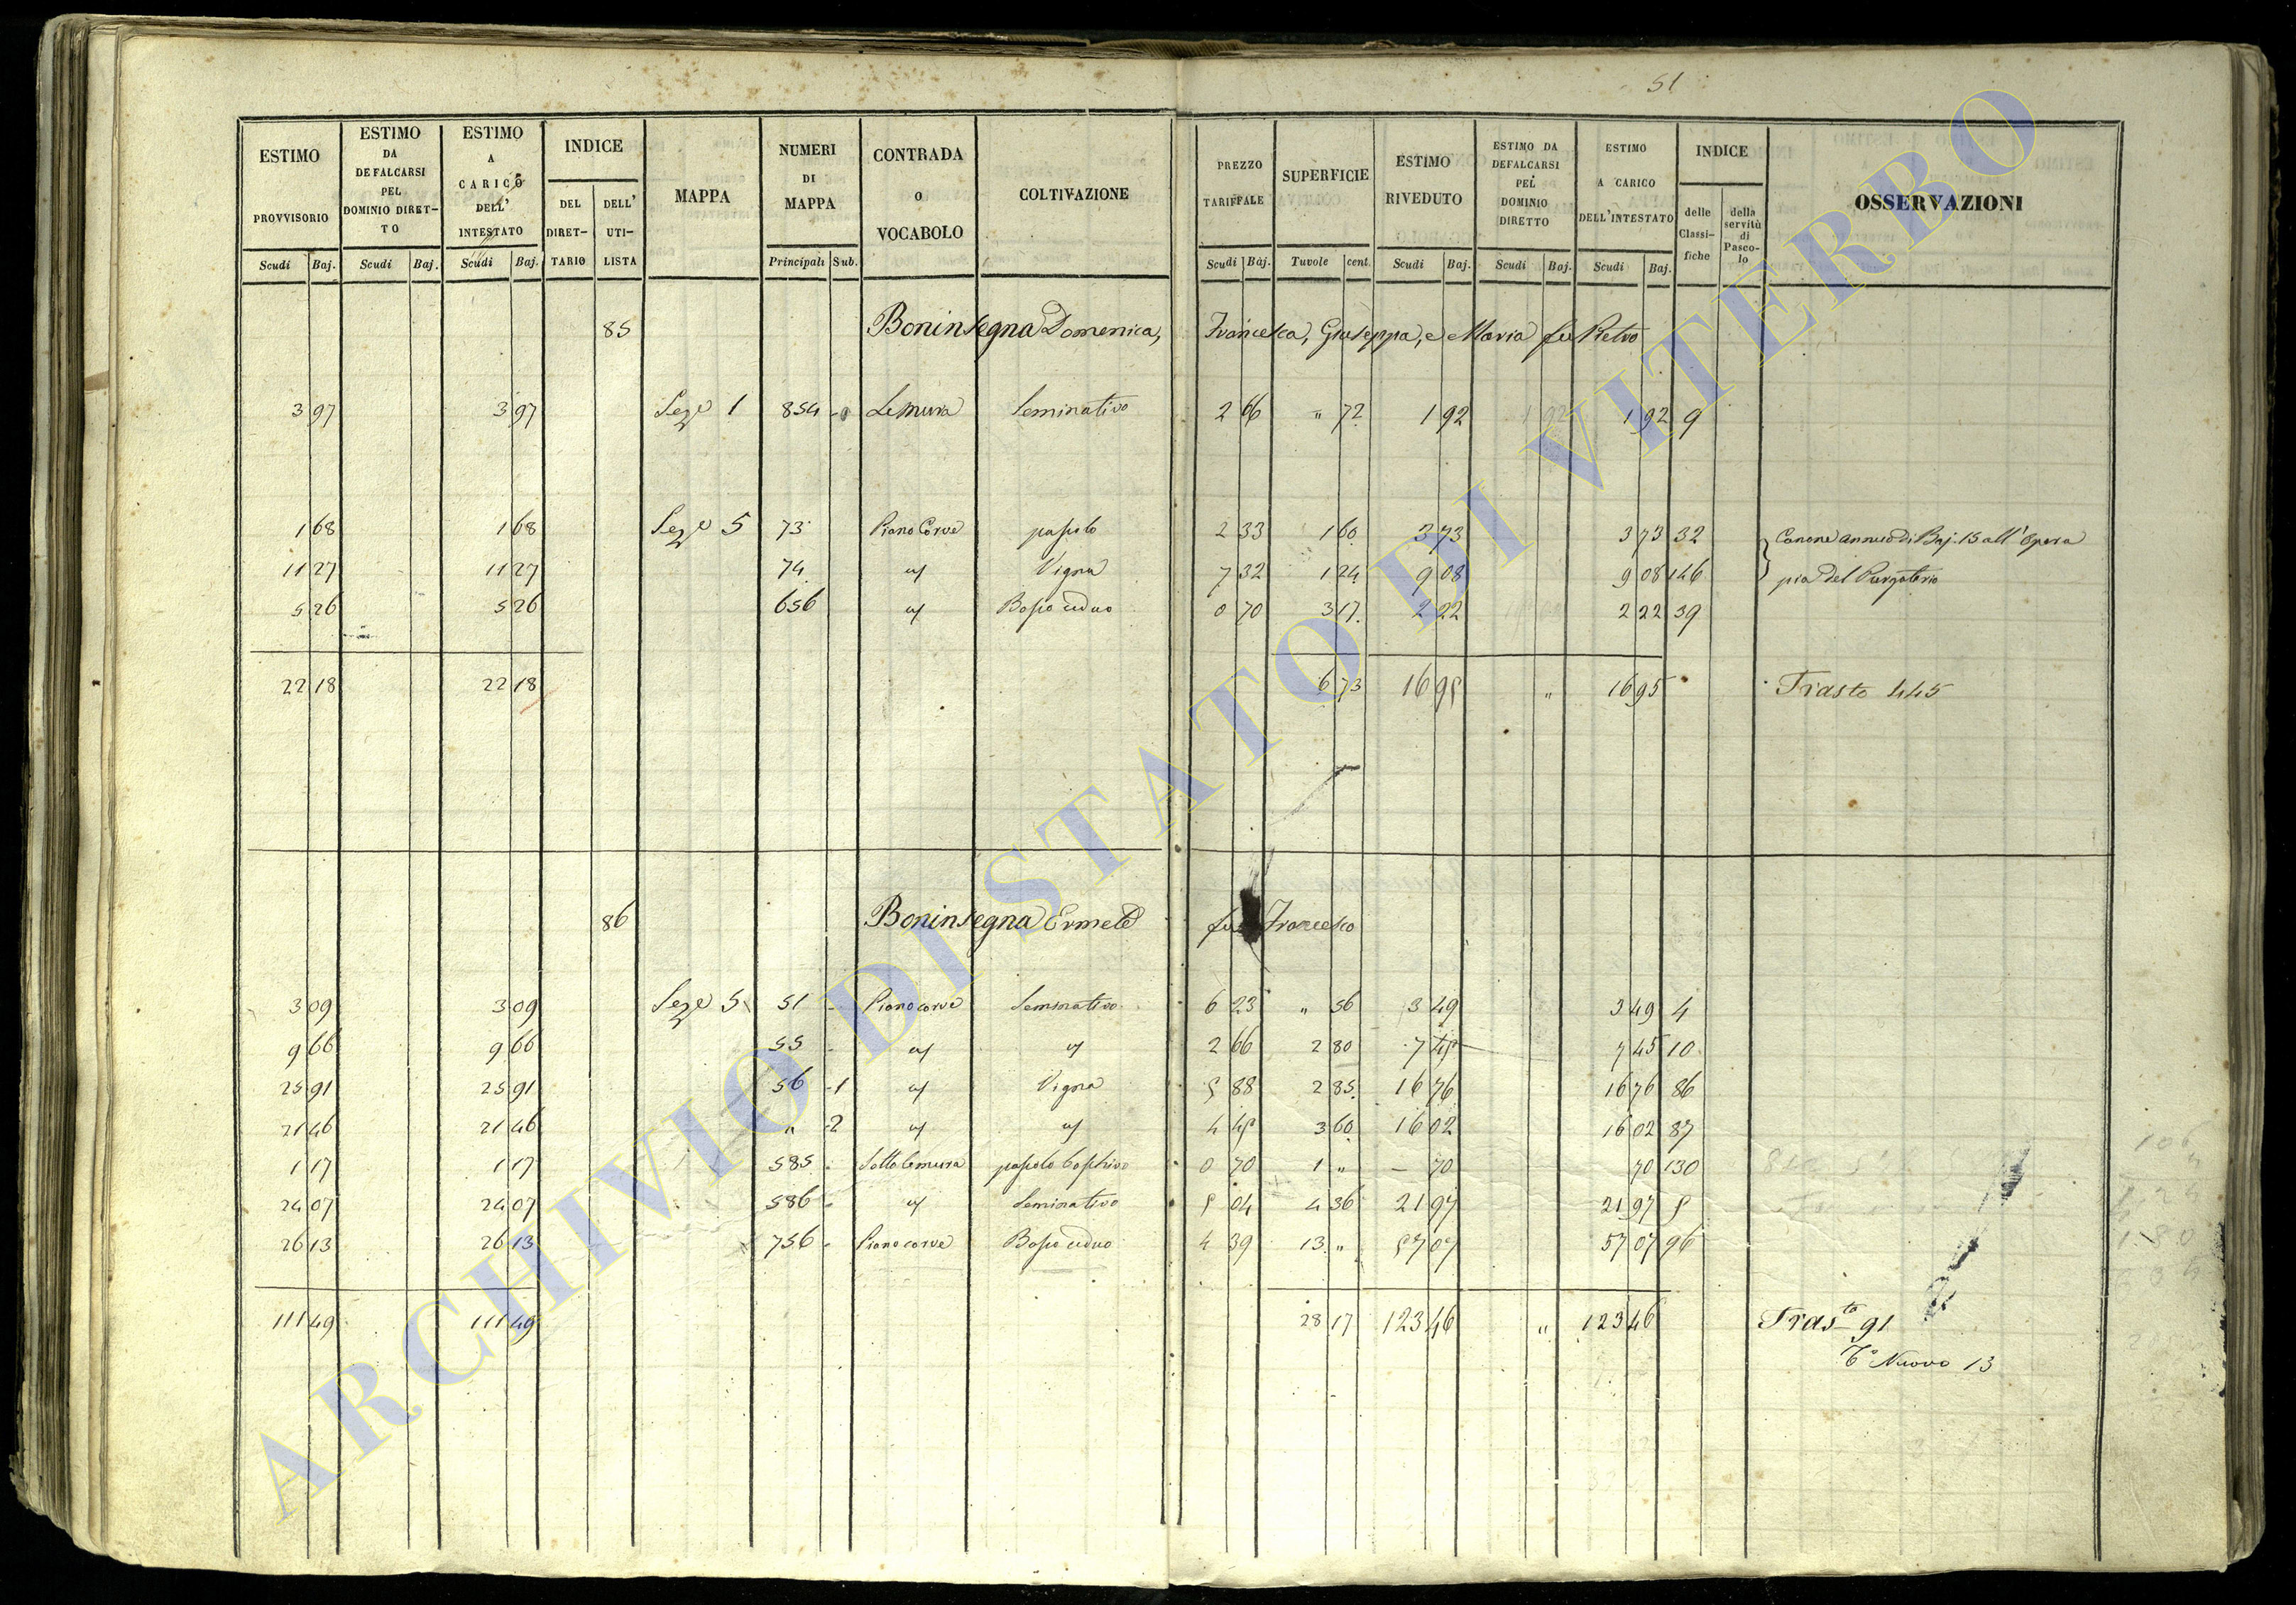 51
ESTIMO PROVVISORIO | ESTIMO DA DEFALCARSI PEL DOMINIO DIRETTO | ESTIMO A CARICO DELL' INTESTATO | INDICE | MAPPA | NUMERI DI MAPPA | CONTRADA O VOCABOLO | COLTIVAZIONE | PREZZO TARIFFALE | SUPERFICIE | ESTIMO RIVEDUTO | ESTIMO DA DEFALCARSI PEL DOMINIO DIRETTO | ESTIMO A CARICO DELL'INTESTATO | INDICE | OSSERVAZIONI
Scudi | Baj. | Scudi | Baj. | Scudi | Baj. | DEL DIRETTARIO | DELL' UTILISTA | Principali | Sub. | Scudi | Baj. | Tavole | cent. | Scudi | Baj. | Scudi | Baj. | Scudi | Baj. | delle Classifiche | della servitù di Pascolo
85 Boninsegna Domenica, Francesca, Giuseppa, e Maria fu Pietro
3 97 | 3 97 | Seze 1 | 854 | Le mura | Seminativo | 2 66 | " 72 | 1 92 | 1 92 | 1 92 | 9
1 68 | 1 68 | Seze 5 | 73 | Piano Corve | pascolo | 2 33 | 1 60 | 3 73 | 3 73 | 32 | Canone annuo di Baj. 15 all' Opera
11 27 | 11 27 | 74 | Vigna | 7 32 | 1 24 | 9 08 | 9 08 | 146 | pia del Purgatorio
5 26 | 5 26 | 656 | Bosco ceduo | 0 70 | 3 17 | 2 22 | 2 22 | 39
22 18 | 22 18 | 6 73 | 16 95 | " | 16 95 | Trasto 445
86 Boninsegna Ermete fu Francesco
3 09 | 3 09 | Seze 5 | 51 | Piano corve | Seminativo | 6 23 | " 56 | 3 49 | 3 49 | 4
9 66 | 9 66 | 55 | 2 66 | 2 80 | 7 45 | 7 45 | 10
25 91 | 25 91 | 56 | 1 | Vigna | 5 88 | 2 85 | 16 76 | 16 76 | 86
21 46 | 21 46 | " | 2 | 4 45 | 3 60 | 16 02 | 16 02 | 87
1 17 | 1 17 | 585 | Sotto le mura | pascolo boschivo | 0 70 | 1 " | – 70 | 70 | 130
24 07 | 24 07 | 586 | Seminativo | 5 04 | 4 36 | 21 97 | 21 97 | 5
26 13 | 26 13 | 756 | Piano corve | Bosco ceduo | 4 39 | 13 " | 57 07 | 57 07 | 96
111 49 | 111 49 | 28 17 | 123 46 | " | 123 46 | Trasto 91
To Nuovo 13
ARCHIVIO DI STATO DI VITERBO